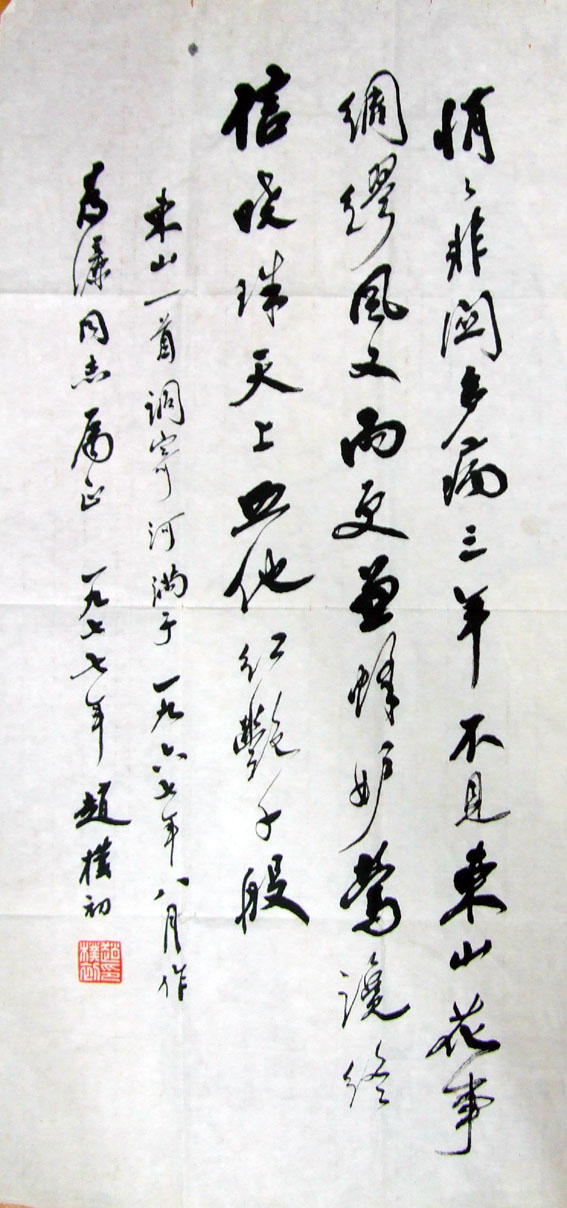 悄々非關多病三年不見東山花事
綢繆風又雨更兼蜂妒鶯讒終
信曉珠天上照他紅艷千般
東山一首調寄河滿子一九六七年八月作
為同志屬正 一九七七年 趙樸初
趙印樸初